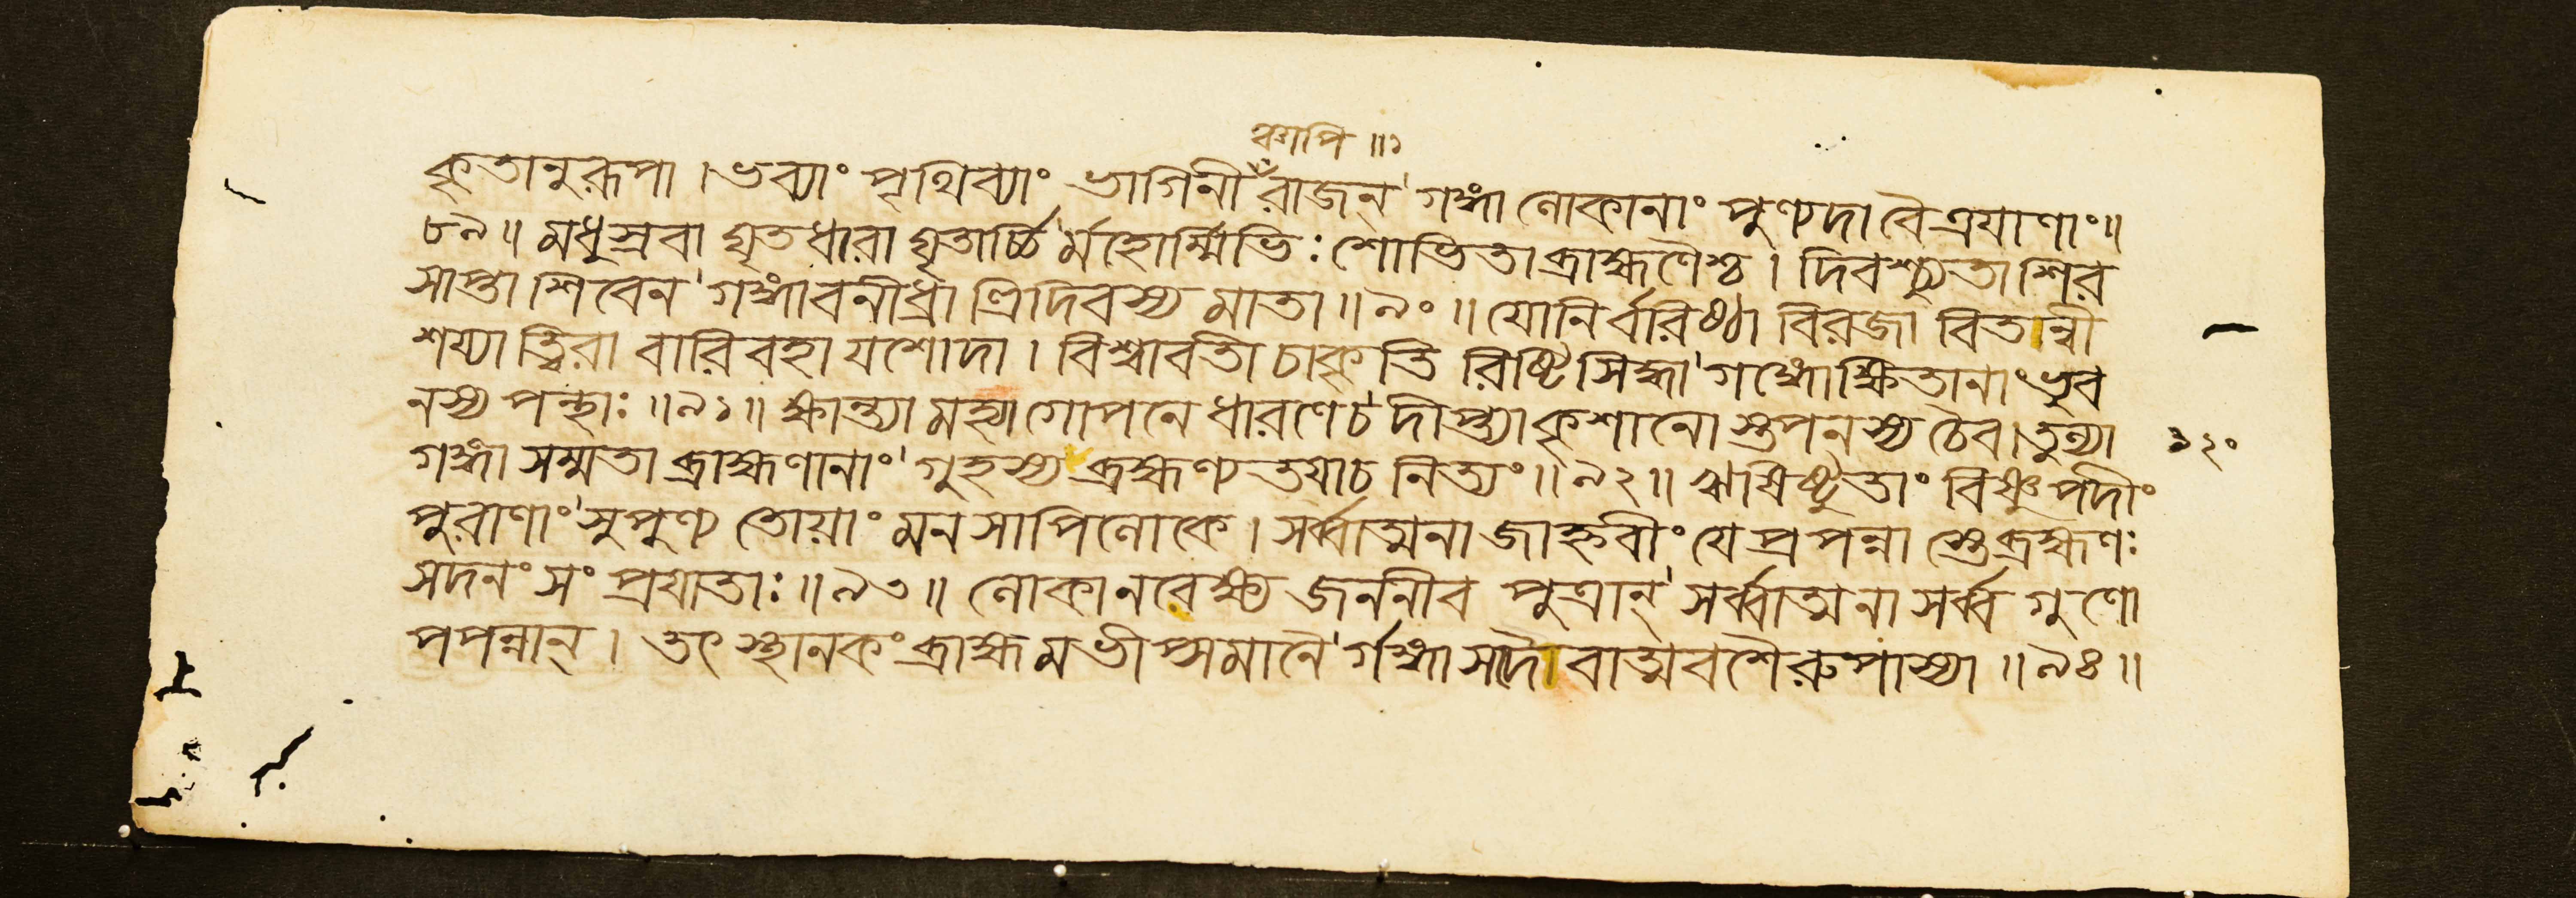 ন্বগাপি ॥১
কৃতানুরূপা । ভব্যাং পৃথিব্যাং ভাগিনী রাজন্ গঙ্গা লোকানাং পুণ্যদা বৈ ত্রয়াণাং॥
৮৯॥ মধুস্রবা ঘৃতধারা ঘৃতার্চ্চি র্মহোর্ম্মিভিঃ শোভিতা ব্রাহ্মণৈশ্চ । দিবশ্চ্যুতা শির
সাপ্তা শিবেন গঙ্গাবনীধ্রা ত্রিদিবস্য মাতা ॥৯০॥ যোনির্বরিষ্ঠা বিরজা বিতান্বী
শয্যা ত্বিরা বারিবহা যশোদা । বিশ্বাবতী চাকৃতি রিষ্টিসিদ্ধা গঙ্গোক্ষিতানাং ভুব
নস্য পন্থাঃ ॥৯১॥ ক্ষান্ত্যা মহ্যা গোপনে ধারণে চ দীপ্ত্যা কৃশানো স্তপনস্য চৈব। তুল্যা
গঙ্গা সম্মতা ব্রাহ্মণানাং গুহস্য ব্রহ্মণ্যতয়া চ নিত্যং ॥৯২॥ ঋষিষ্টুতাং বিষ্ণুপদীং
৯২০
পুরাণাং সুপুণ্যতোয়াং মনসাপি লোকে । সর্ব্বাত্মনা জাহ্নবীং যে প্রপন্না স্তে ব্রহ্মণঃ
সদনং সংপ্রয়াতাঃ ॥৯৩॥ লোকানবেক্ষ্য জননীব পুত্রান্ সর্ব্বাত্মনা সর্ব্বগুণো
পপন্নান্ । তৎস্থানকং ব্রাহ্মমভীপ্সমানৈ র্গঙ্গা সদৈবাত্মবশৈরুপাস্যা ॥৯৪॥